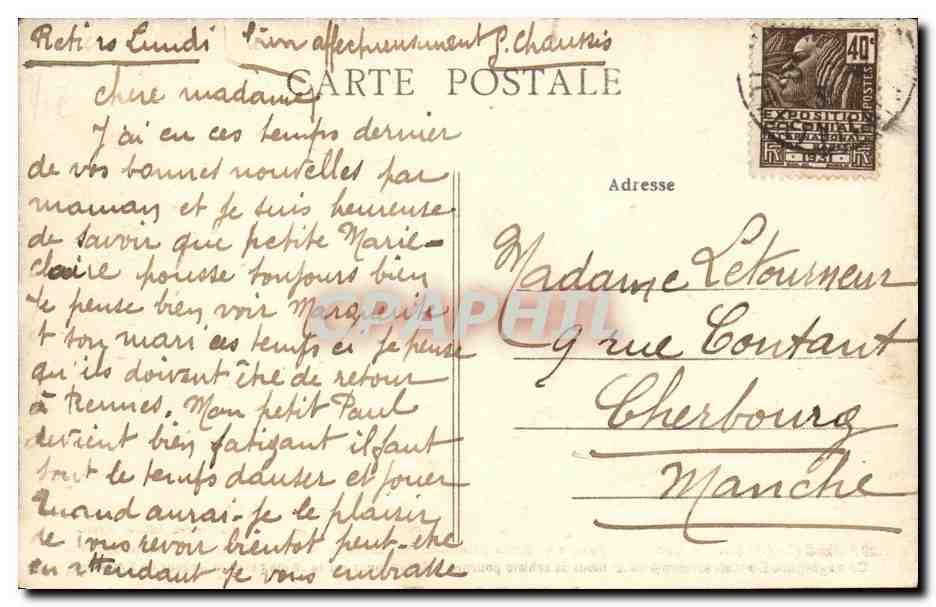 Retiers Lundi
bien affectueusement G. Chaussis
CARTE POSTALE
chere madame
J'ai eu ces temps dernier
de vos bonnes nouvelles par
maman et je suis heureuse
de savoir que petite Marie-
claire pousse toujours bien
Je pense bien voir Marguerite
et son mari ces temps ci je pense
qu'ils doivent être de retour
à Rennes. Mon petit Paul
devient bien fatigant il faut
tout le temps danser et jouer
Quand aurai-je le plaisir
de vous revoir bientot peut-être
en attendant je vous embrasse
Adresse
Madame Letourneur
9 rue Contant
Cherbourg
Manche
40c
POSTES
EXPOSITION
COLONIALE
INTERNATIONALE
PARIS
RF 1931
CPAPHIL